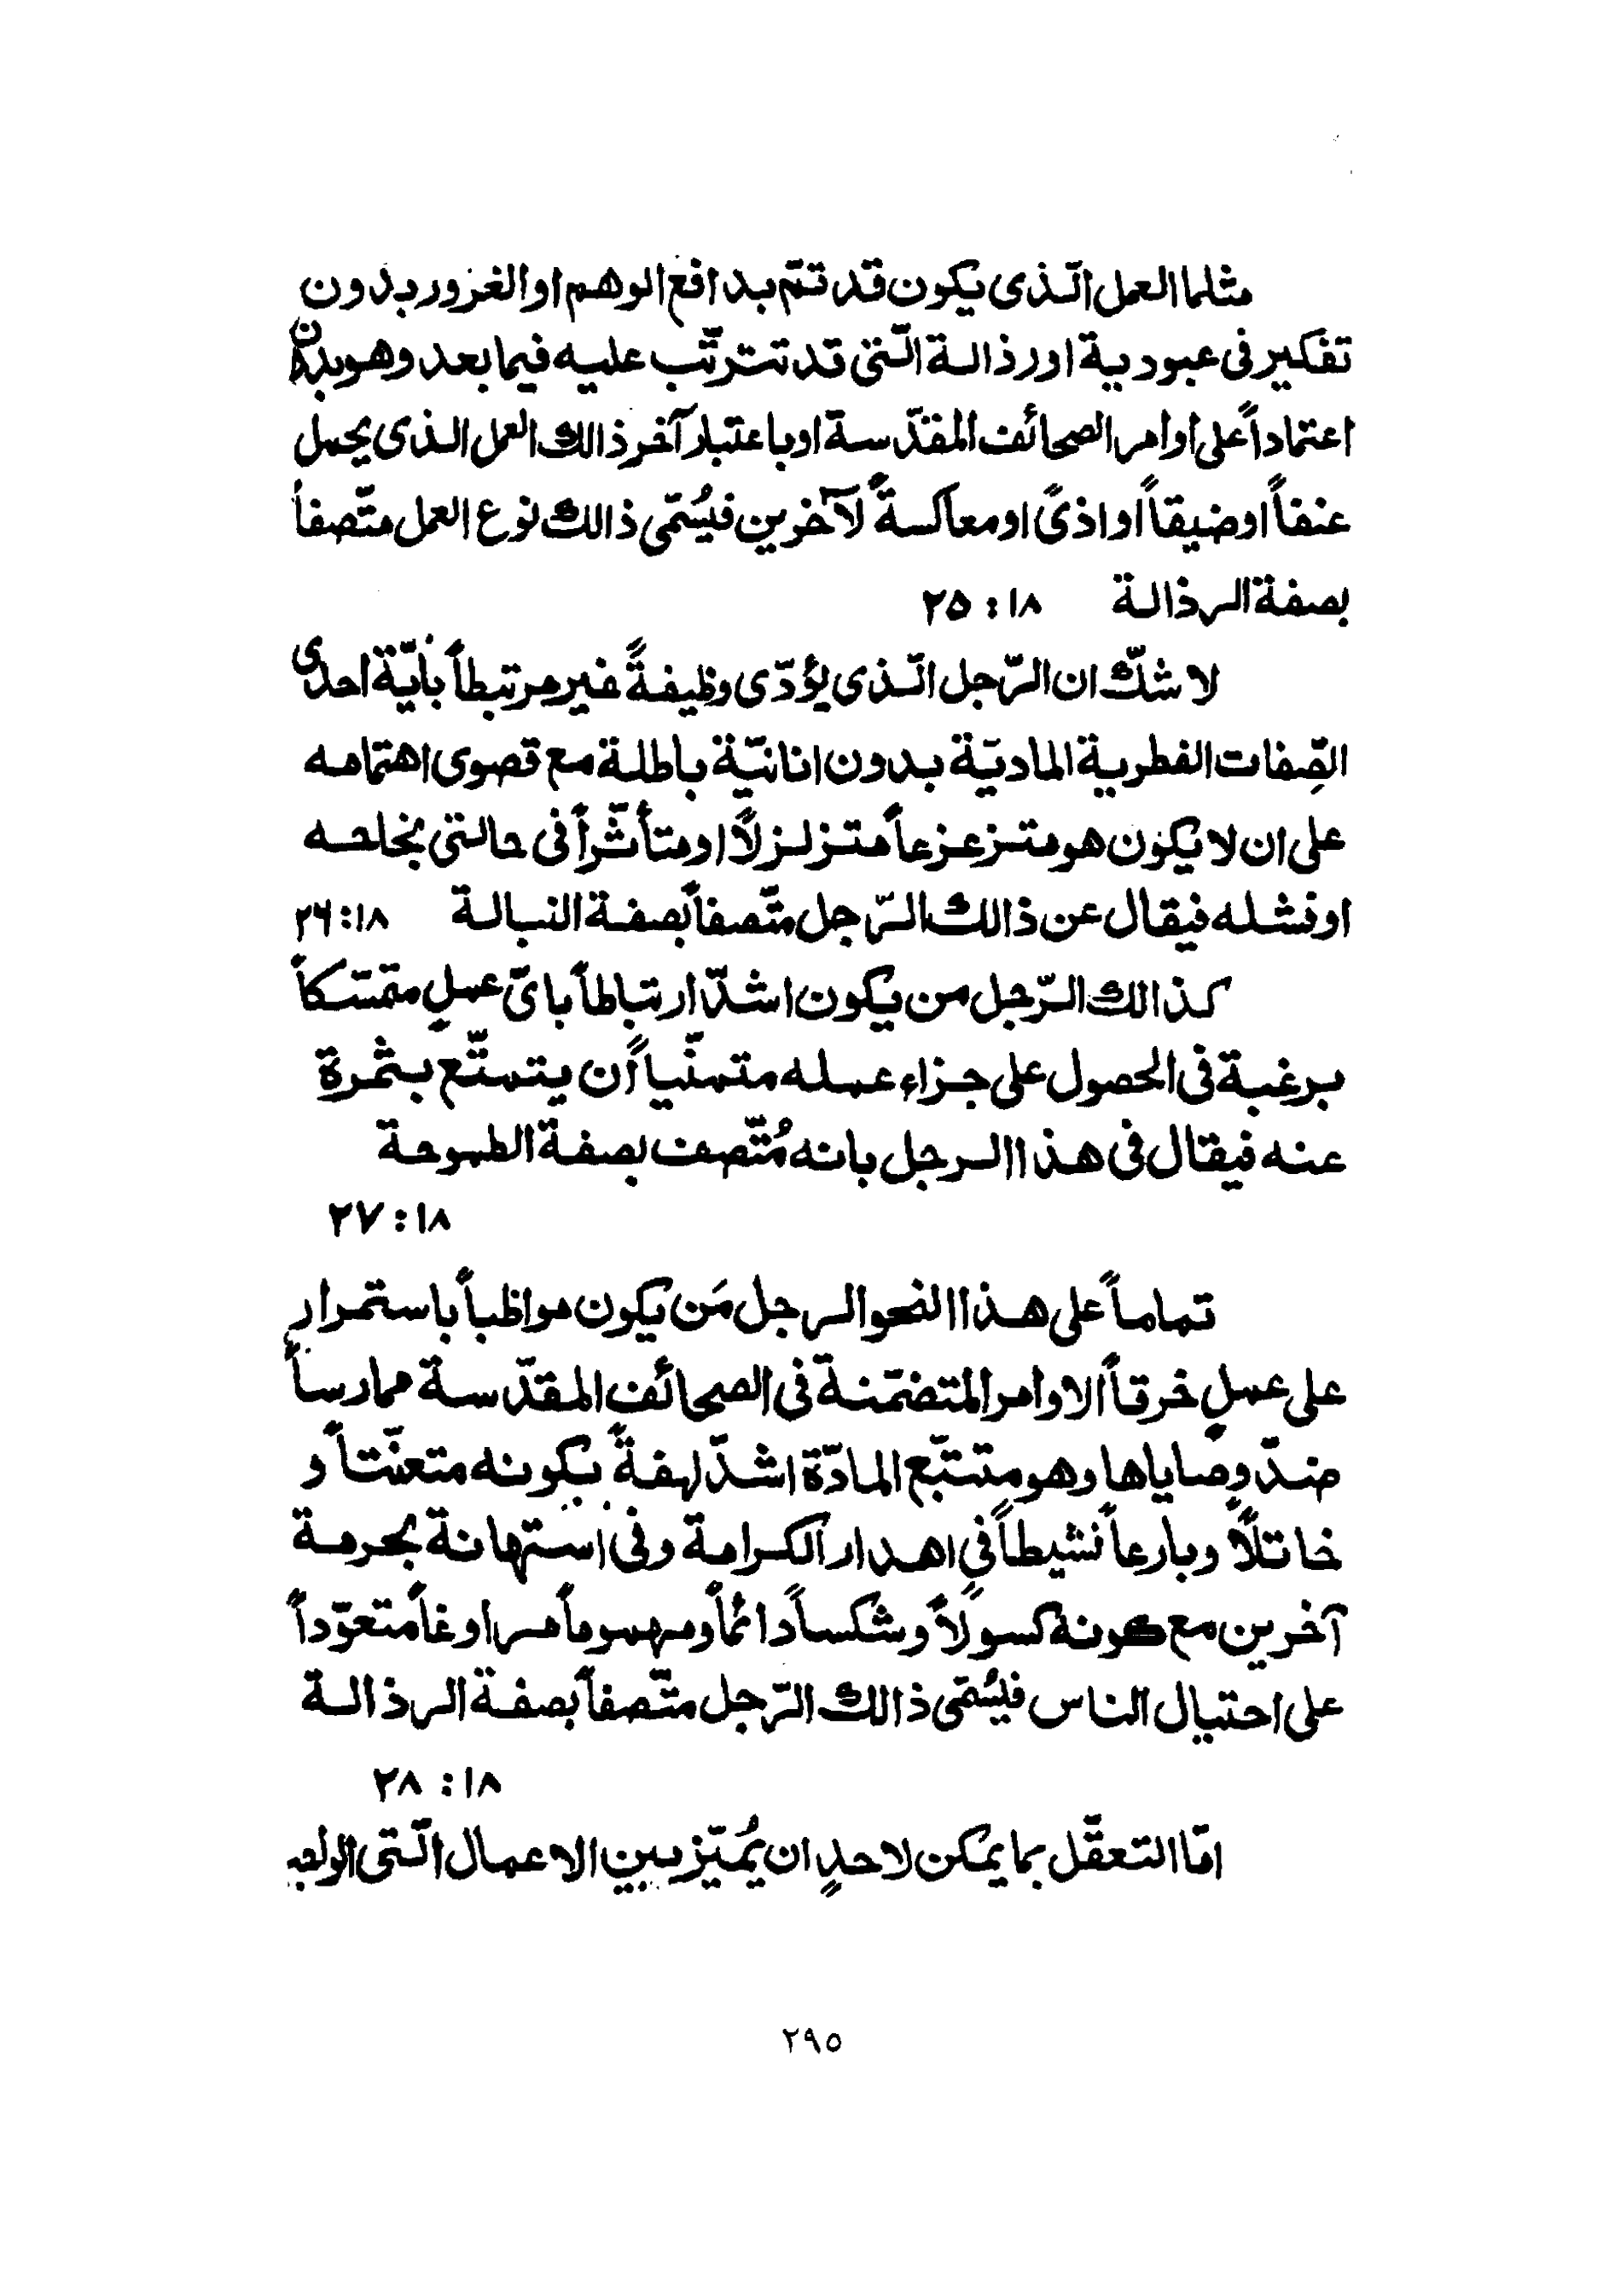 مثلما العمل الّذى يكون قد تتمّ بدافع الوهم او الغرور بدون
تفكير فى عبودية او رذالة الّتى قد تترتّب عليه فيما بعد وهو بدون
اعتماداً على أوامر الصحائف المقدّسة او باعتبار آخر ذالك العمل الذى يحمل
عنفاً او ضيقاً او اذىً او معاكسةً لآخرين فيُسمّى ذالك نوع العمل متّصفاً
بصفة الرذالة ١٨ : ٢٥
لا شكّ ان الرّجل الّذى يؤدّى وظيفةً غير مرتبطاً بأيّة احدى
الصِّفات الفطرية الماديّة بدون انانيّة باطلة مع قصوى اهتمامه
على ان لا يكون هو متزعزعاً متزلزلاً او متأثّراً فى حالتى نجاحه
او فشله فيقال عن ذالك الرّجل متّصفاً بصفة النبالة ١٨ : ٢٦
كذالك الرّجل من يكون اشدّ ارتباطاً باىّ عملٍ متمسّكاً
برغبة فى الحصول على جزاء عمله متمنّياً أن يتمتّع بثمرة
عنه فيقال فى هذا الرجل بانه مُتّصف بصفة الطموحة
١٨ : ٢٧
تماماً على هذا النحو الرجل مَن يكون مواظباً باستمرار
على عملٍ خرقاً الاوامر المتضمّنة فى الصحائف المقدّسة ممارساً
ضدّ وصاياها وهو متتبّع المادّة اشدّ لهفةً بكونه متعنّتاً و
خاتلاً وبارعاً نشيطاً فى اهدار الكرامة وفى استهانة بحرمة
آخرين مع كونه كسولاً وشكساً دائماً ومهموماً مراوغاً متعوّداً
على احتيال الناس فيُسمّى ذالك الرّجل متّصفاً بصفة الرذالة
١٨ : ٢٨
امّا التعقّل بما يمكن لاحدٍ ان يُميّز بين الاعمال الّتى
٢٩٥